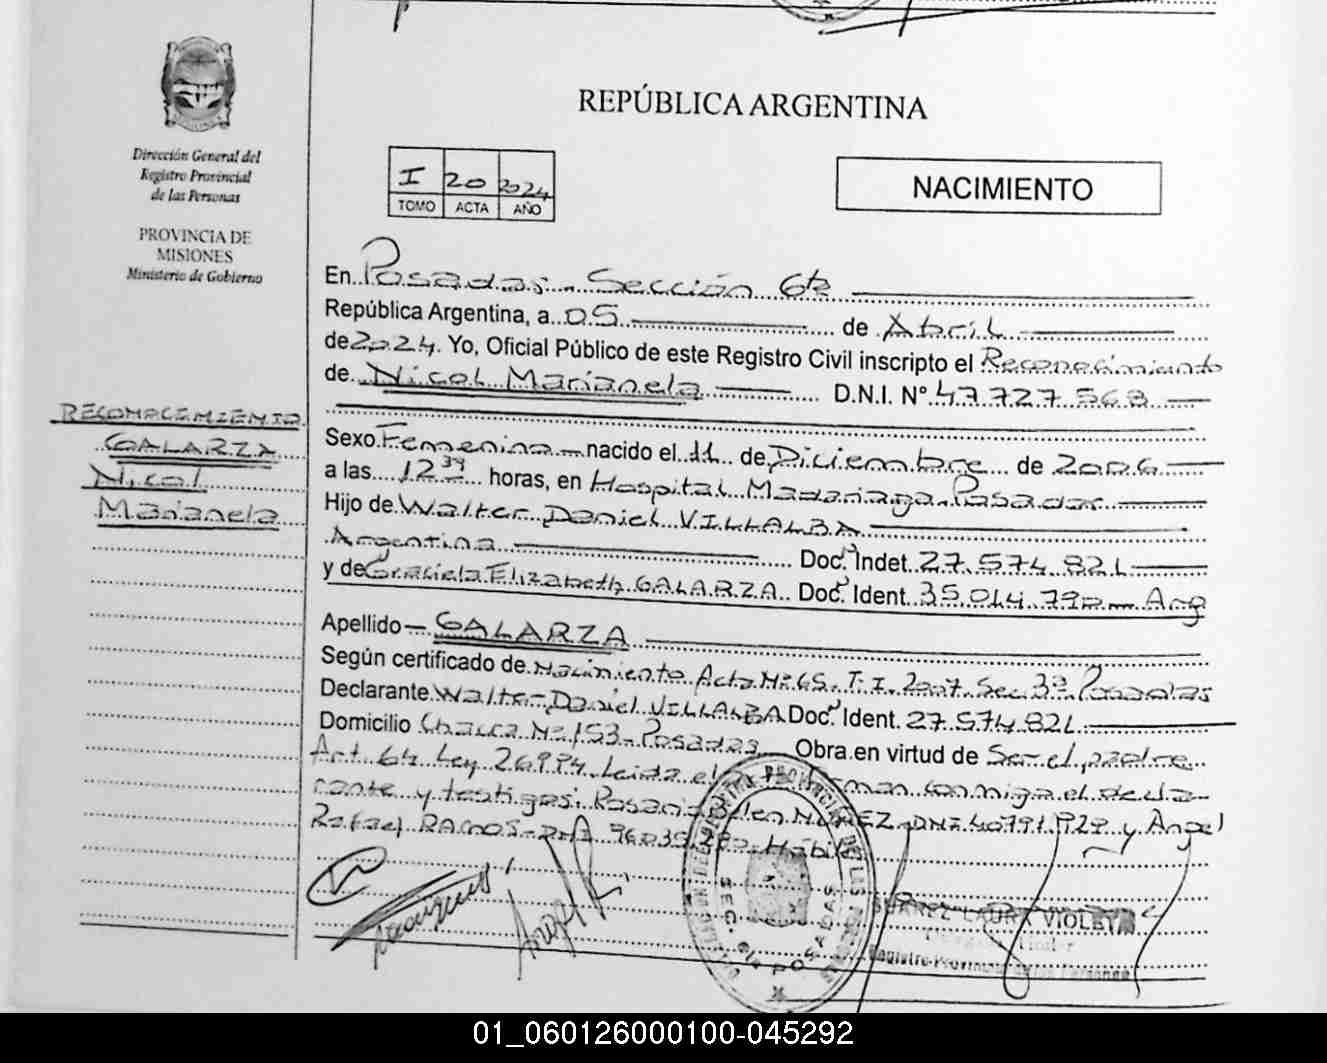 REPÚBLICA ARGENTINA
Dirección General del
Registro Provincial
de las Personas
PROVINCIA DE
MISIONES
Ministerio de Gobierno
I 20 2024
TOMO ACTA AÑO
NACIMIENTO
En Posadas - Sección 6ta
República Argentina, a 05 de Abril
de 2024. Yo, Oficial Público de este Registro Civil inscripto el Reconocimiento
de Nicol Marianela D.N.I. N° 47.727.568
RECONOCIMIENTO
GALARZA
Nicol
Marianela
Sexo Femenino nacido el 11 de Diciembre de 2006
a las 12 39 horas, en Hospital Madariaga Posadas
Hijo de Walter Daniel VILLALBA
Argentina Doc. Indet. 27.574.821
y de Graciela Elizabeth GALARZA Doc. Ident. 35.014.790 Arg
Apellido GALARZA
Según certificado de Nacimiento Acta N° 65 T. I. 2007 Sec 3° Posadas
Declarante Walter Daniel VILLALBA Doc. Ident. 27.574.821
Domicilio Chacra N° 153 - Posadas Obra en virtud de Ser el padre
Art. 64 Ley 26994 Leida el firman conmigo el decla-
rante y testigos: Belen NUÑEZ DNI 40791929 y Angel
Rafael RAMOS DNI Hábil
SUAREZ LAURA VIOLETA
Registro Provincial de las Personas
01_060126000100-045292